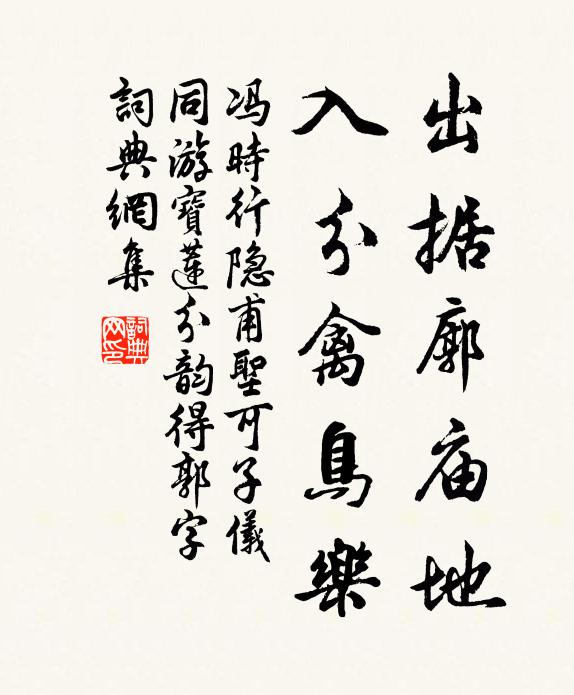 出据廓庙地
入分禽鳥樂
冯時行隐甫聖可子儀
同游寶蓮分韵得郭字
詞典網集
詞典网印